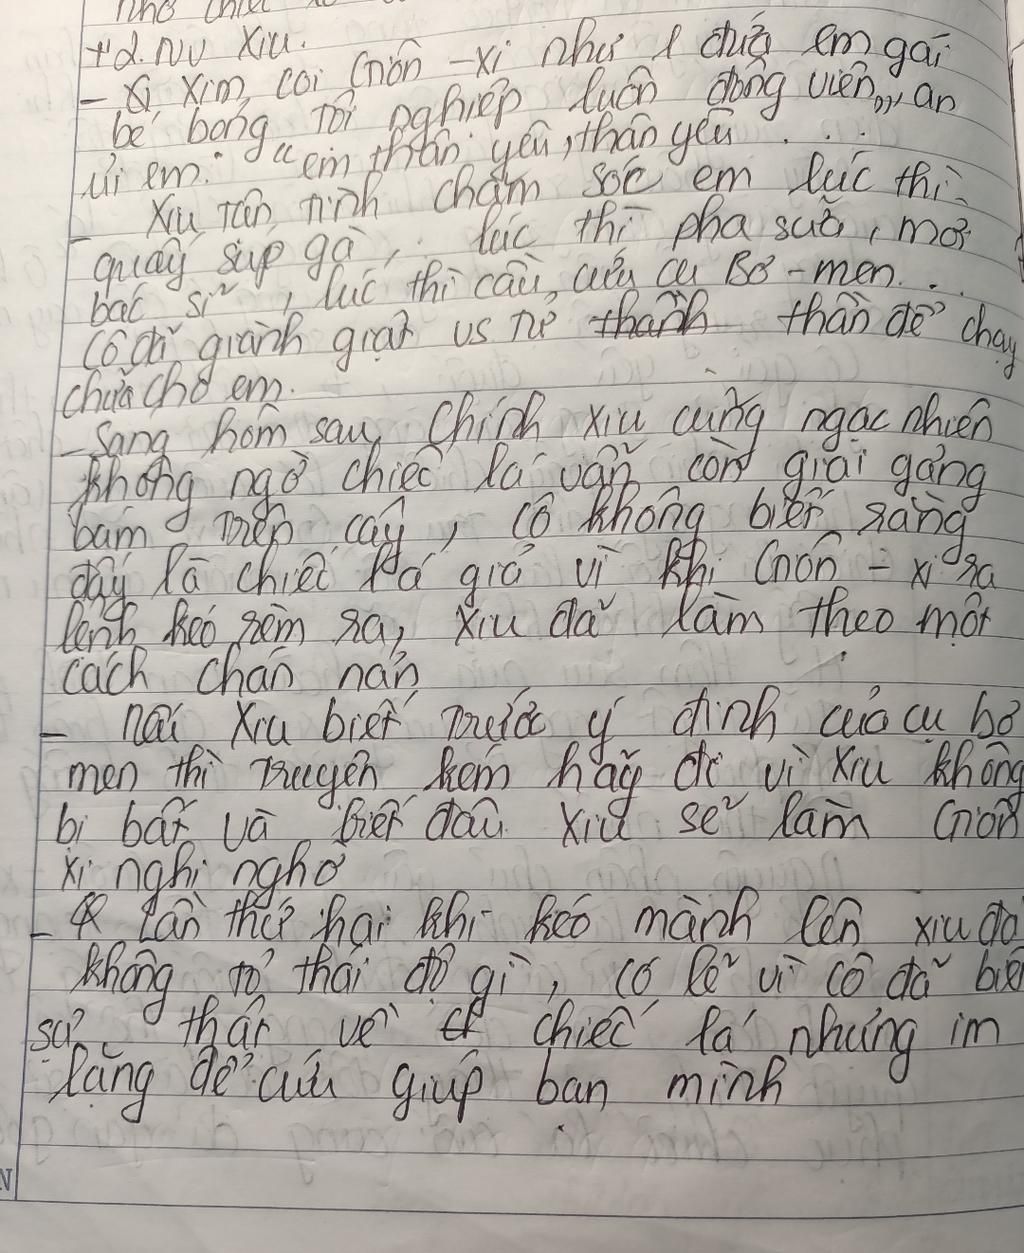 nhờ chiếc
+ 2. NV Xiu.
- Xiu xim, coi Giôn - xi như 1 đứa em gái
bé bỏng tội nghiệp luôn động viên, an
ủi em: "em thân yêu, thân yêu ...
- Xiu tận tình chăm sóc em lúc thì
quấy súp gà, lúc thì pha sữa, mời
bác sĩ, lúc thì cầu cứu cụ Bơ - men...
Cô đã giành giật vs tử thần để chạy
chữa cho em.
- Sáng hôm sau, chính xiu cũng ngạc nhiên
không ngờ chiếc lá vẫn còn giai gẳng
bám trên cây, cô không biết rằng
đây là chiếc lá giả vì khi Giôn - xi ra
lệnh kéo rèm ra, xiu đã làm theo một
cách chán nản
- Nếu Xiu biết trước ý định của cụ bơ
men thì truyện kém hay đi vì xiu không
bị bất và biết đâu xiu sẽ làm Giôn
xi nghi ngờ
- Lần thứ hai khi kéo mành lên xiu đã
không tỏ thái độ gì, có lẽ vì cô đã biết
sự thật về chiếc lá nhưng im
lặng để cứu giúp bạn mình
N